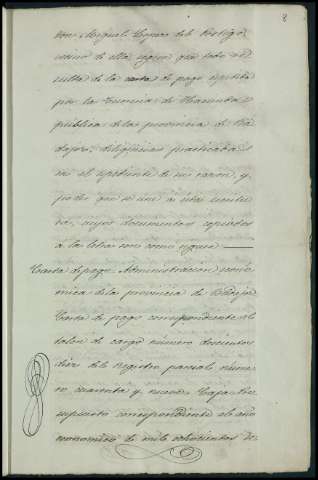 8
don Miguel Lopez del Postigo
vecino de ella segun que todo re-
sulta de la carta de pago espedida
por la Tesoreria de Hacienda
publica de la provincia de Ba-
dajoz, diligencias practicadas
en el espediente de su razon, y
poder que se une a esta escritu-
ra, cuyos documentos copiados
a la letra son como sigue
Carta de pago. Administracion econo-
mica de la provincia de Badajoz
Carta de pago correspondiente al
talon de cargo número doscientos
diez del registro parcial núme-
ro cuarenta y nueve. Caja. Pre-
supuesto correspondiente al año
economico de mil ochocientos se-